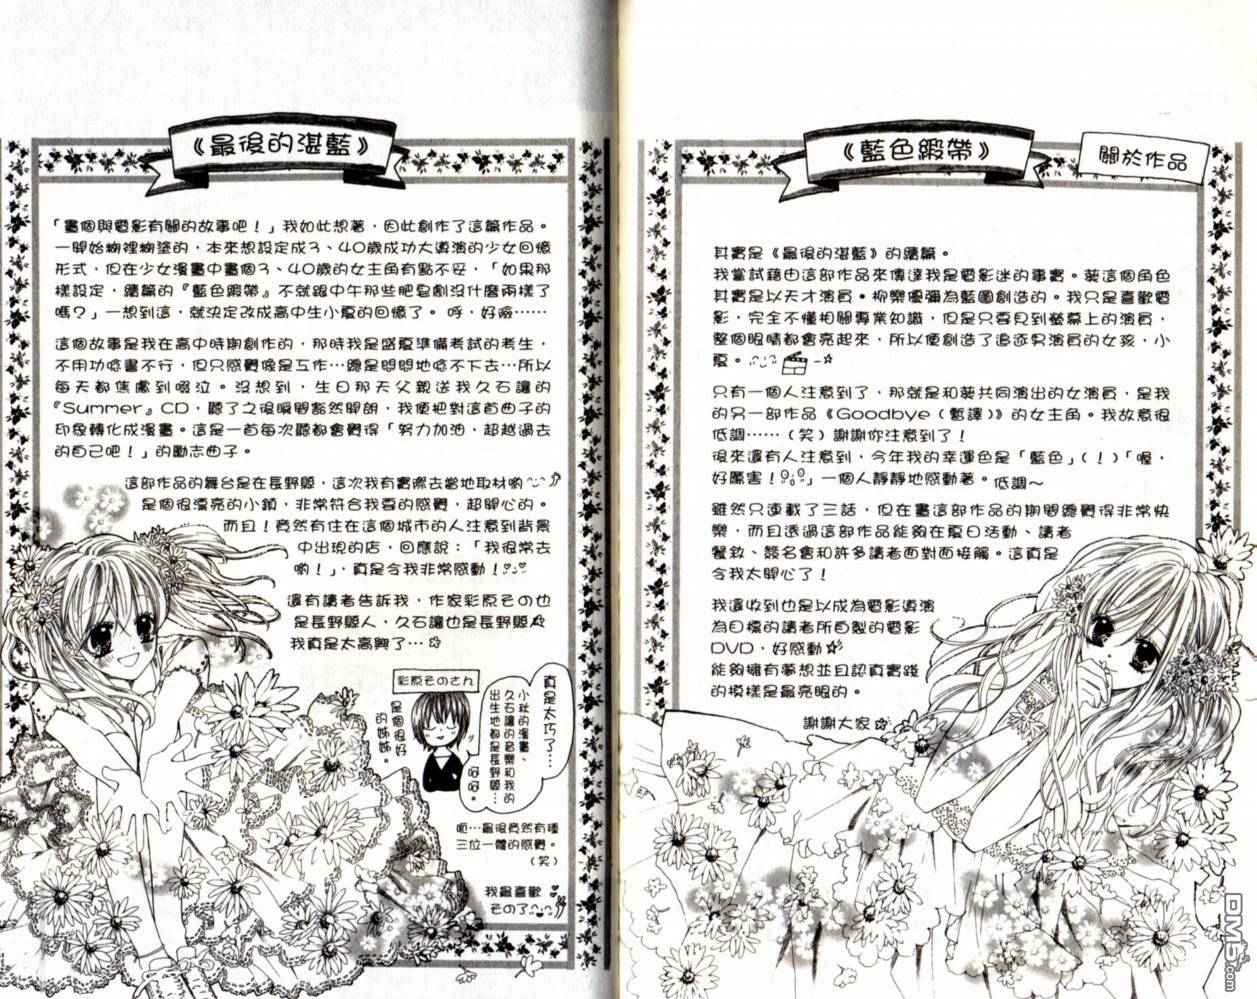 關於作品
《藍色緞帶》
其實是《最後的湛藍》的續篇。
我嘗試藉由這部作品來傳達我是電影迷的事實。葵這個角色
其實是以天才演員。柳樂優彌為藍圖創造的。我只是喜歡電
影,完全不懂相關專業知識,但是只要見到螢幕上的演員,
整個眼睛都會亮起來,所以便創造了追逐男演員的女孩,小
夏。
只有一個人注意到了,那就是和葵共同演出的女演員,是我
的另一部作品《Goodbye(暫譯)》的女主角。我故意很
低調……(笑)謝謝你注意到了!
後來還有人注意到,今年我的幸運色是「藍色」(!)「喔,
好厲害!」一個人靜靜地感動著。低調~
雖然只連載了三話,但在畫這部作品的期間總覺得非常快
樂,而且透過這部作品能夠在夏日活動、讀者
餐敘、簽名會和許多讀者面對面接觸。這真是
令我太開心了!
我還收到也是以成為電影導演
為目標的讀者所自製的電影
DVD,好感動☆
能夠擁有夢想並且認真實踐
的模樣是最亮眼的。
謝謝大家☆
《最後的湛藍》
「畫個與電影有關的故事吧!」我如此想著,因此創作了這篇作品。
一開始糊裡糊塗的,本來想設定成3、40歲成功大導演的少女回憶
形式,但在少女漫畫中畫個3、40歲的女主角有點不妥,「如果那
樣設定,續篇的『藍色緞帶』不就跟中午那些肥皂劇沒什麼兩樣了
嗎?」一想到這,就決定改成高中生小夏的回憶了。 呼,好險……
這個故事是我在高中時期創作的,那時我是盛夏準備考試的考生,
不用功唸書不行,但只感覺像是互作…總是悶悶地唸不下去…所以
每天都焦慮到啜泣。沒想到,生日那天父親送我久石讓的
『Summer』CD,聽了之後瞬間豁然開朗,我便把對這首曲子的
印象轉化成漫畫。這是一首每次聽都會覺得「努力加油,超越過去
的自己吧!」的勵志曲子。
這部作品的舞台是在長野縣,這次我有實際去當地取材喲~
是個很漂亮的小鎮,非常符合我要的感覺,超開心的。
而且!竟然有住在這個城市的人注意到背景
中出現的店,回應說:「我很常去
喲!」,真是令我非常感動!
還有讀者告訴我,作家彩原その也
是長野縣人,久石讓也是長野縣☆
我真是太高興了…☆
真是太巧了…
小秋的漫畫、
久石讓的音樂、和我的
出生地都是長野縣…
呵呵。
彩原そのさん
是個很好
的姊姊。
呃…最後竟然有種
三位一體的感覺。
(笑)
我最喜歡
その了
DM5.com